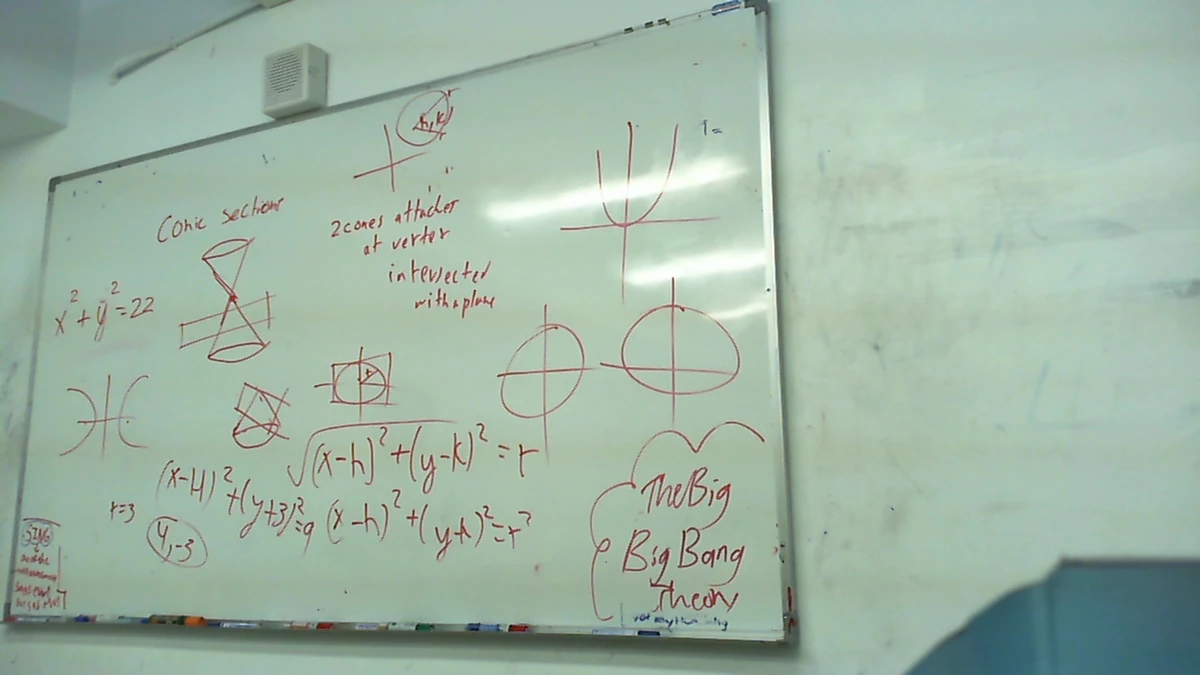 h,k
Conic sections
2 cones attacher
at verter
intersected
with a plane
x²+y²=22
√(x-h)²+(y-k)²=r
(x-4)²+(y+3)²=9
(x-h)²+(y-k)²=r²
r=3
4,-3
The Big
Big Bang
Theory
SING